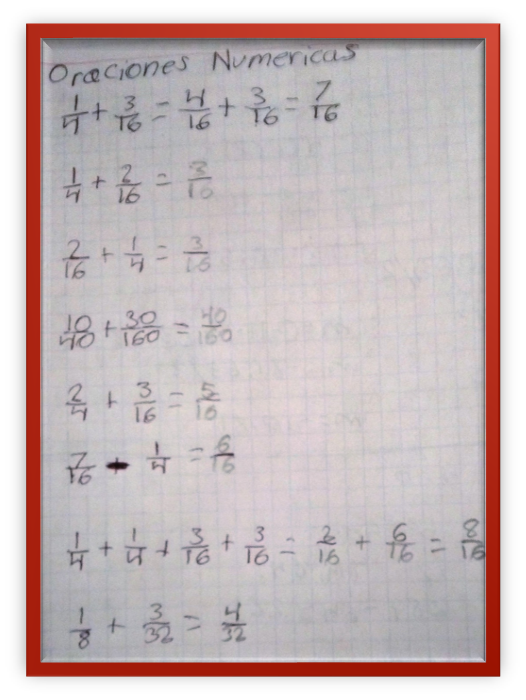 Oraciones Numericas
1/4 + 3/16 = 4/16 + 3/16 = 7/16
1/4 + 2/16 = 3/16
2/16 + 1/4 = 3/16
10/40 + 30/160 = 40/160
2/4 + 3/16 = 5/16
7/16 - 1/4 = 6/16
1/4 + 1/4 + 3/16 + 3/16 = 2/16 + 6/16 = 8/16
1/8 + 3/32 = 4/32